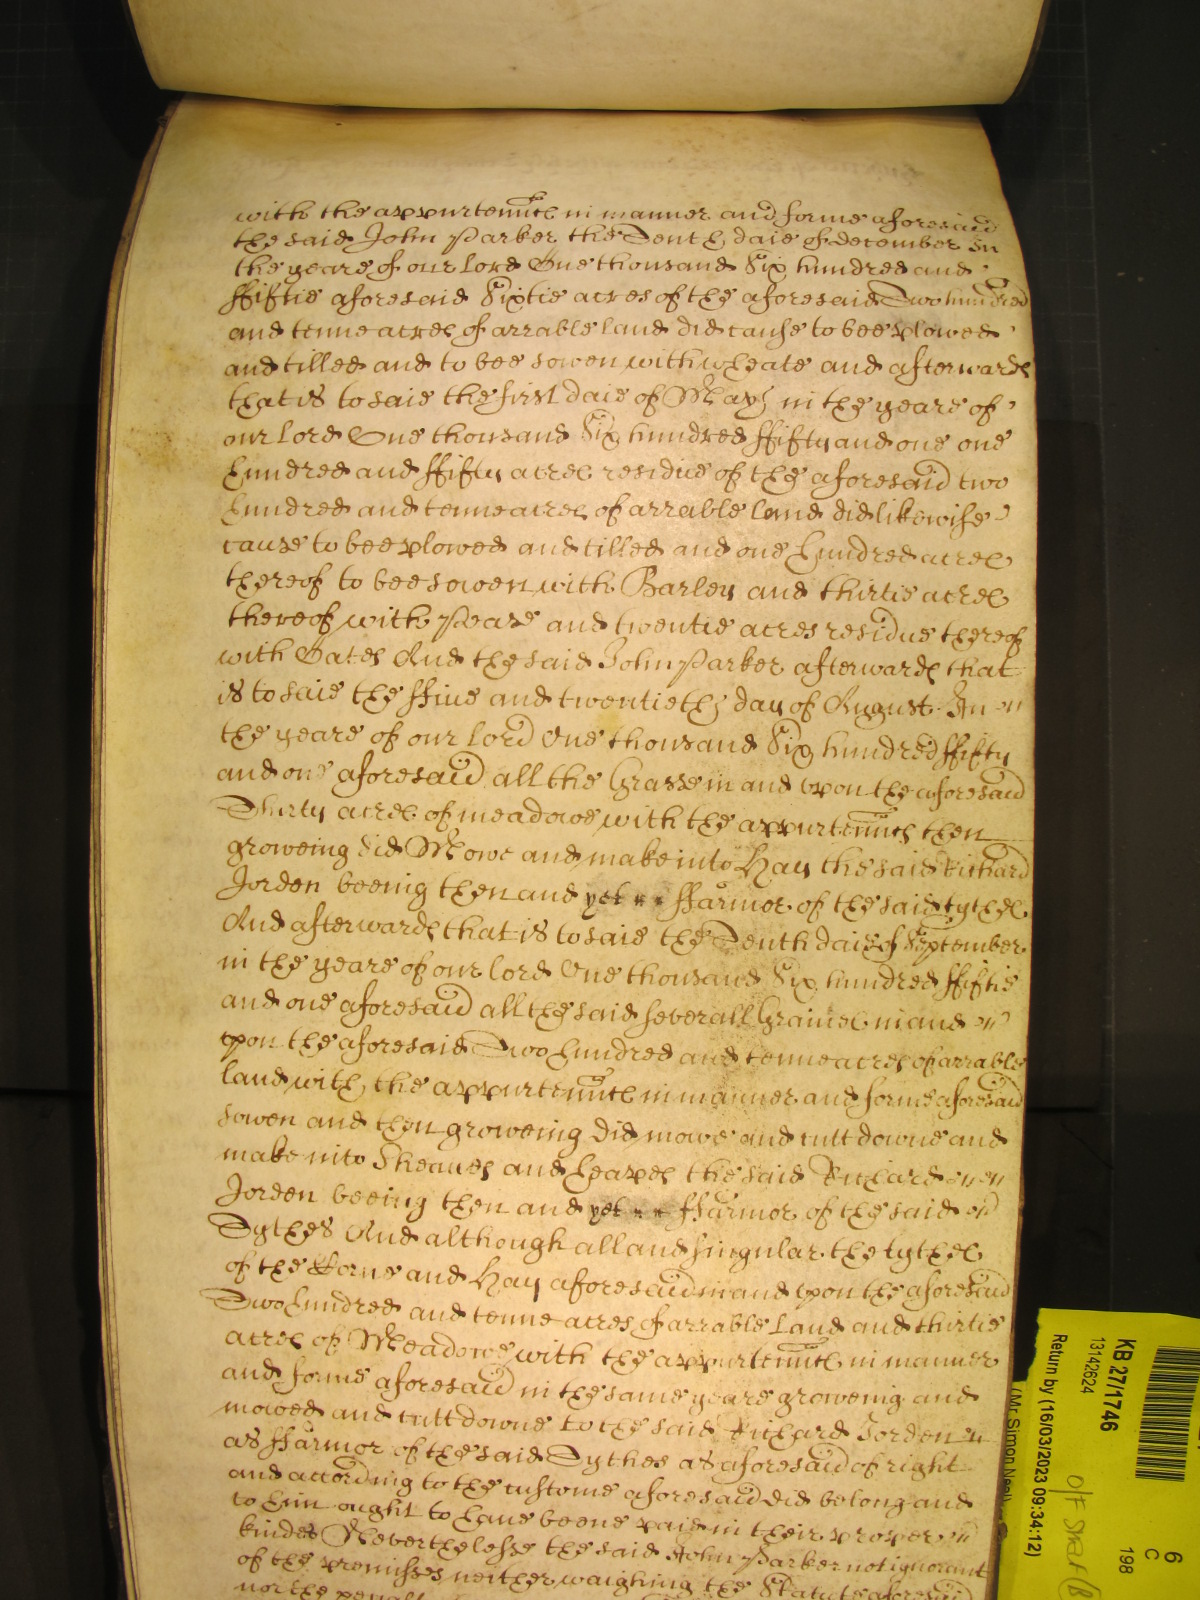 with the appurtenncs in manner and forme aforesaid
the said John Parker the Tenth daie of december In
the yeare of our Lord One thousand Six hundred and
ffiftie aforesaid Sixtie acres of the aforesaid Two hundred
and tenne acres of arrable land did cause to bee plowed
and tilled and to bee sowen with wheate and afterwards
that is to saie the first daie of May in the yeare of
our Lord One thousand Six hundred ffifty and one one
hundred and ffifty acres residue of the aforesaid two
hundred and tenne acres of arrable land did likewise
cause to bee plowed and tilled and one hundred acres
thereof to bee sowen with Barley and thirtie acres
thereof with Pease and twentie acres residue thereof
with Oates And the said John Parker afterwards that
is to saie the ffive and twentieth day of August In
the yeare of our Lord One thousand Six hundred ffifty
and one aforesaid all the Grasse in and upon the aforesaid
Thirty acres of meadowe with the appurtenncs then
groweing did Mowe and make into Hay the said Richard
Jorden beeing then and yet ffarmor of the said tythes
And afterwards that is to saie the Tenth daie of September
in the yeare of our Lord One thousand Six hundred ffiftie
and one aforesaid all the said severall Graines in and
upon the aforesaid Two hundred and tenne acres of arrable
land with the appurtenncs in manner and forme aforesaid
sowen and then groweing did mowe and cutt downe and
make into Sheaves and heapes the said Richard
Jorden beeing then and yet ffarmor of the said
Tythes And although all and singular the tythes
of the Corne and Hay aforesaid in and upon the aforesaid
Two hundred and tenne acres of arrable Land and thirtie
acres of Meadowe with the appurtenncs in manner
and forme aforesaid in the same yeare groweing and
mowed and cutt downe to the said Richard Jorden
as ffarmor of the said Tythes as aforesaid of right
and according to the custome aforesaid did belong and
to him ought to have beene paid in their proper
kindes Neverthelesse the said John Parker not ignorant
of the premisses neither waighing the Statute aforesaid
nor the
KB 27/1746
13142624
Return by (16/03/2023 09:34:12)
(Mr Simon Neal)
6
C
198